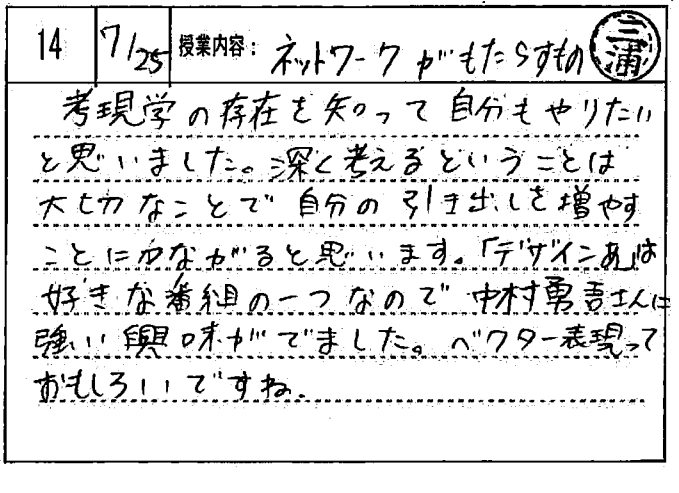 14 7/25 授業内容: ネットワークがもたらすもの 三浦
考現学の存在を知って自分もやりたい
と思いました。深く考えるということは
大切なことで自分の引き出しを増やす
ことにつながると思います。「デザインあ」は
好きな番組の一つなので中村勇吾さんに
強い興味がでました。ベクター表現って
おもしろいですね。